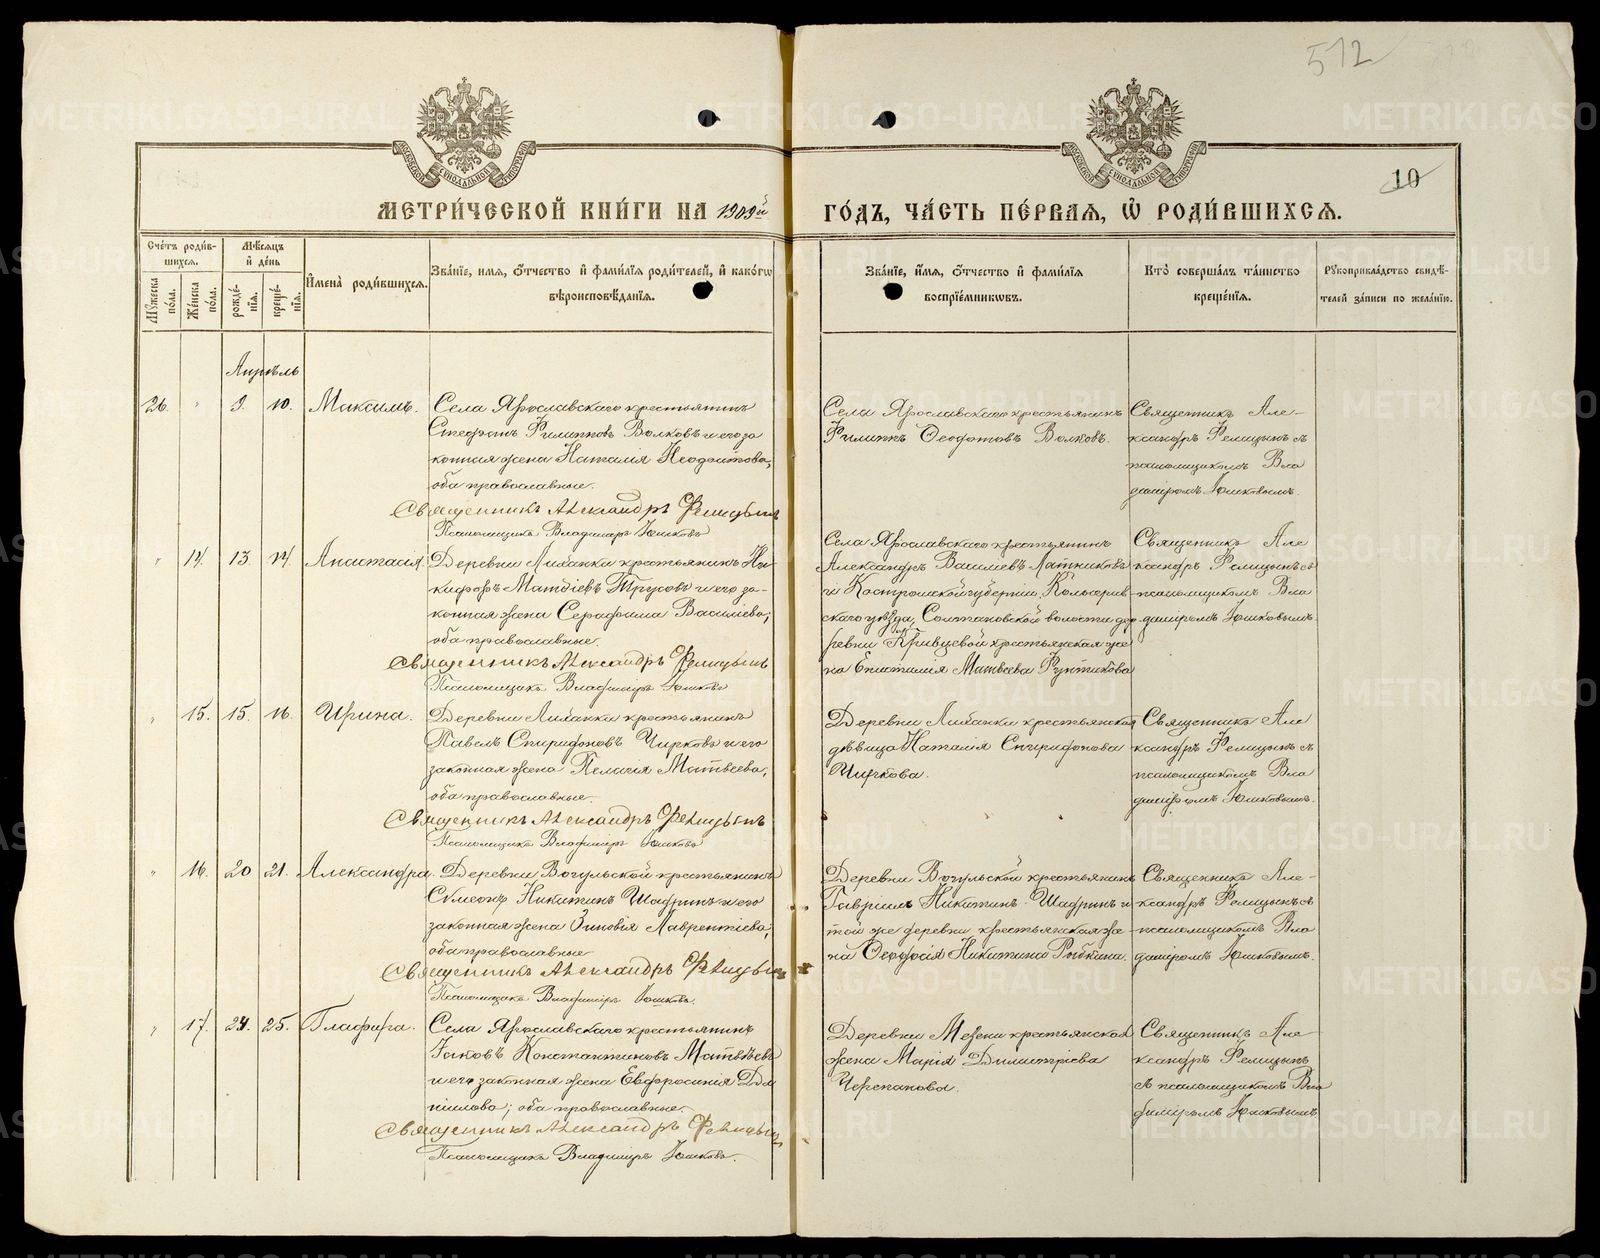 512
10
МЕТРИ́ЧЕСКОЙ КНИ́ГИ НА 1909й ГО́ДЪ, ЧА́СТЬ ПЕ́РВАЯ, Ѡ҆ РОДИ́ВШИХСЯ.
Сче́тъ роди́вшихся.
Му́жеска по́ла.
Же́нска по́ла.
Мѣ́сяцъ и҆ де́нь
рожде́нїя.
креще́нїя.
И҆мена̀ роди́вшихся.
Зва́нїе, и҆мя, ѻ҆́тчество и҆ фами́лїя роди́телей, и҆ како́гѡ
вѣроисповѣ́данїя.
Зва́нїе, и҆́мя, ѻ҆́тчество и҆ фами́лїя
воспрїе́мниковъ.
Кто̀ соверша́лъ та́инство
креще́нїя.
Рꙋкоприкла́дство свидѣ́-
телей за́писи по жела́нїю.
Апрѣль
26. " 9. 10. Максимъ.
Села Ярославскаго крестьянинъ
Стефанъ Филипповъ Волковъ и его за
конная жена Наталія Неодоитова,
оба православные.
Священникъ Александръ Фелицынъ
Псаломщикъ Владиміръ Юшковъ
Села Ярославскаго крестьянинъ
Филиппъ Ѳеодотовъ Волковъ.
Священникъ Але-
ксандръ Фелицынъ съ
псаломщикомъ Вла
диміромъ Юшковымъ.
" 14. 13. 14. Анастасія.
Деревни Лиханки крестьянинъ Ни
кифоръ Матѳіевъ Трусовъ и его за-
конная жена Серафима Василіева;
оба православные.
Священникъ Александръ Фелицынъ
Псаломщикъ Владиміръ Юшковъ
Села Ярославскаго крестьянинъ
Александръ Василіевъ Латниковъ
и Костромской губерніи,
скаго уѣзда, Солтановской волости де
ревни Кривцевой крестьянская же
на Епистимія Матвѣева
Священникъ Але
ксандръ Фелицынъ съ
псаломщикомъ Вла
диміромъ Юшковымъ.
" 15. 15. 16. Ирина.
Деревни Лиханки крестьянинъ
Павелъ Спиридоновъ Чирковъ и его
законная жена Пелагія Матвѣева,
оба православные.
Священникъ Александръ Фелицынъ
Псаломщикъ Владиміръ Юшковъ
Деревни Лиханки крестьянская
дѣвица Наталія Спиридонова
Чиркова.
Священникъ Але
ксандръ Фелицынъ съ
псаломщикомъ Вла
диміромъ Юшковымъ.
" 16. 20 21. Александра.
Деревни Вогульской крестьянинъ
Сѵмеонъ Никитинъ Шадринъ и его
законная жена Зиновія Лаврентіева,
оба православные
Священникъ Александръ Фелицынъ
Псаломщикъ Владиміръ Юшковъ.
Деревни Вогульской крестьянинъ
Гавріилъ Никитинъ Шадринъ и
той же деревни крестьянская же
на Ѳеодосія Никитина Рыбкина.
Священникъ Але-
ксандръ Фелицынъ съ
псаломщикомъ Вла
диміромъ Юшковымъ.
" 17. 24. 25. Глафира.
Села Ярославскаго крестьянинъ
Іаковъ Константиновъ Матвѣевъ
и его законная жена Евфросинія Да
ніилова; оба православные.
Священникъ Александръ Фелицынъ
Псаломщикъ Владиміръ Юшковъ.
Деревни Мезени крестьянская
жена Марія Димитріева
Черепанова.
Священникъ Але-
ксандръ Фелицынъ
съ псаломщикомъ Вла
диміромъ Юшковымъ
METRIKI.GASO-URAL.RU